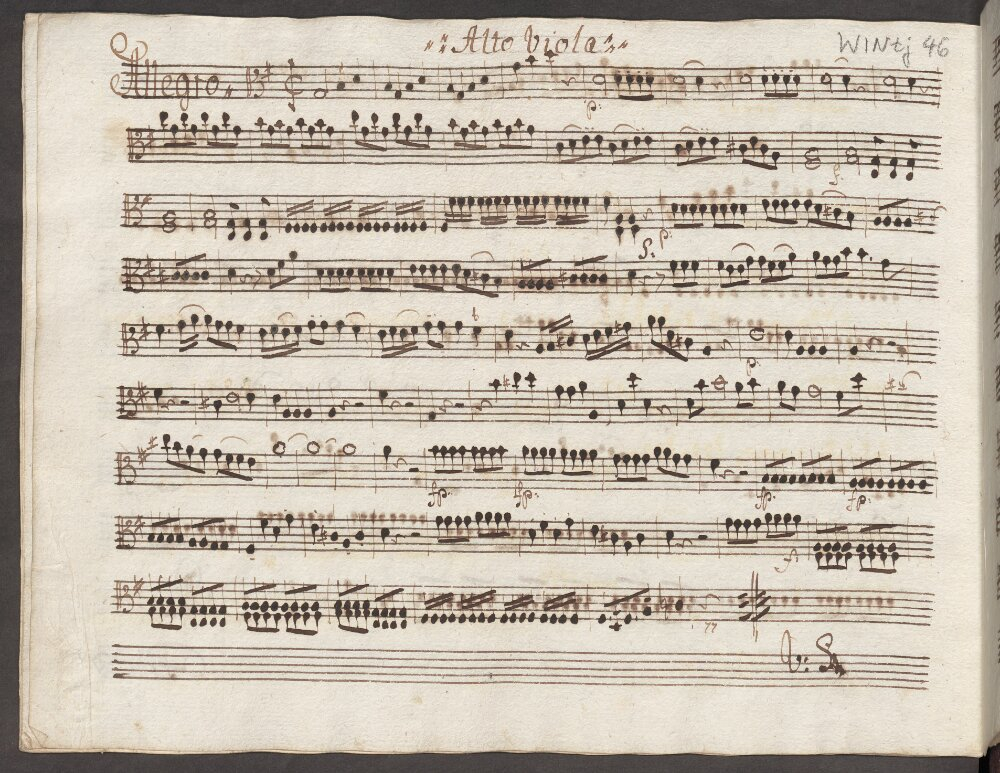 Alto Viola
WINtj 46
Allegro
p:
f.
f. p.
p.
fp: fp: fp: fp:
f
V: S